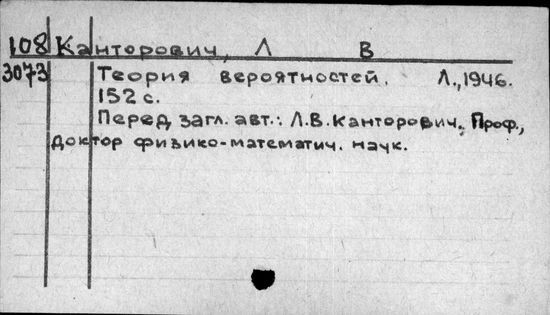 108 Канторович, Л В
3073 Теория вероятностей. Л., 1946.
152 с.
Перед загл. авт.: Л.В. Канторович, Проф.,
доктор физико-математич. наук.